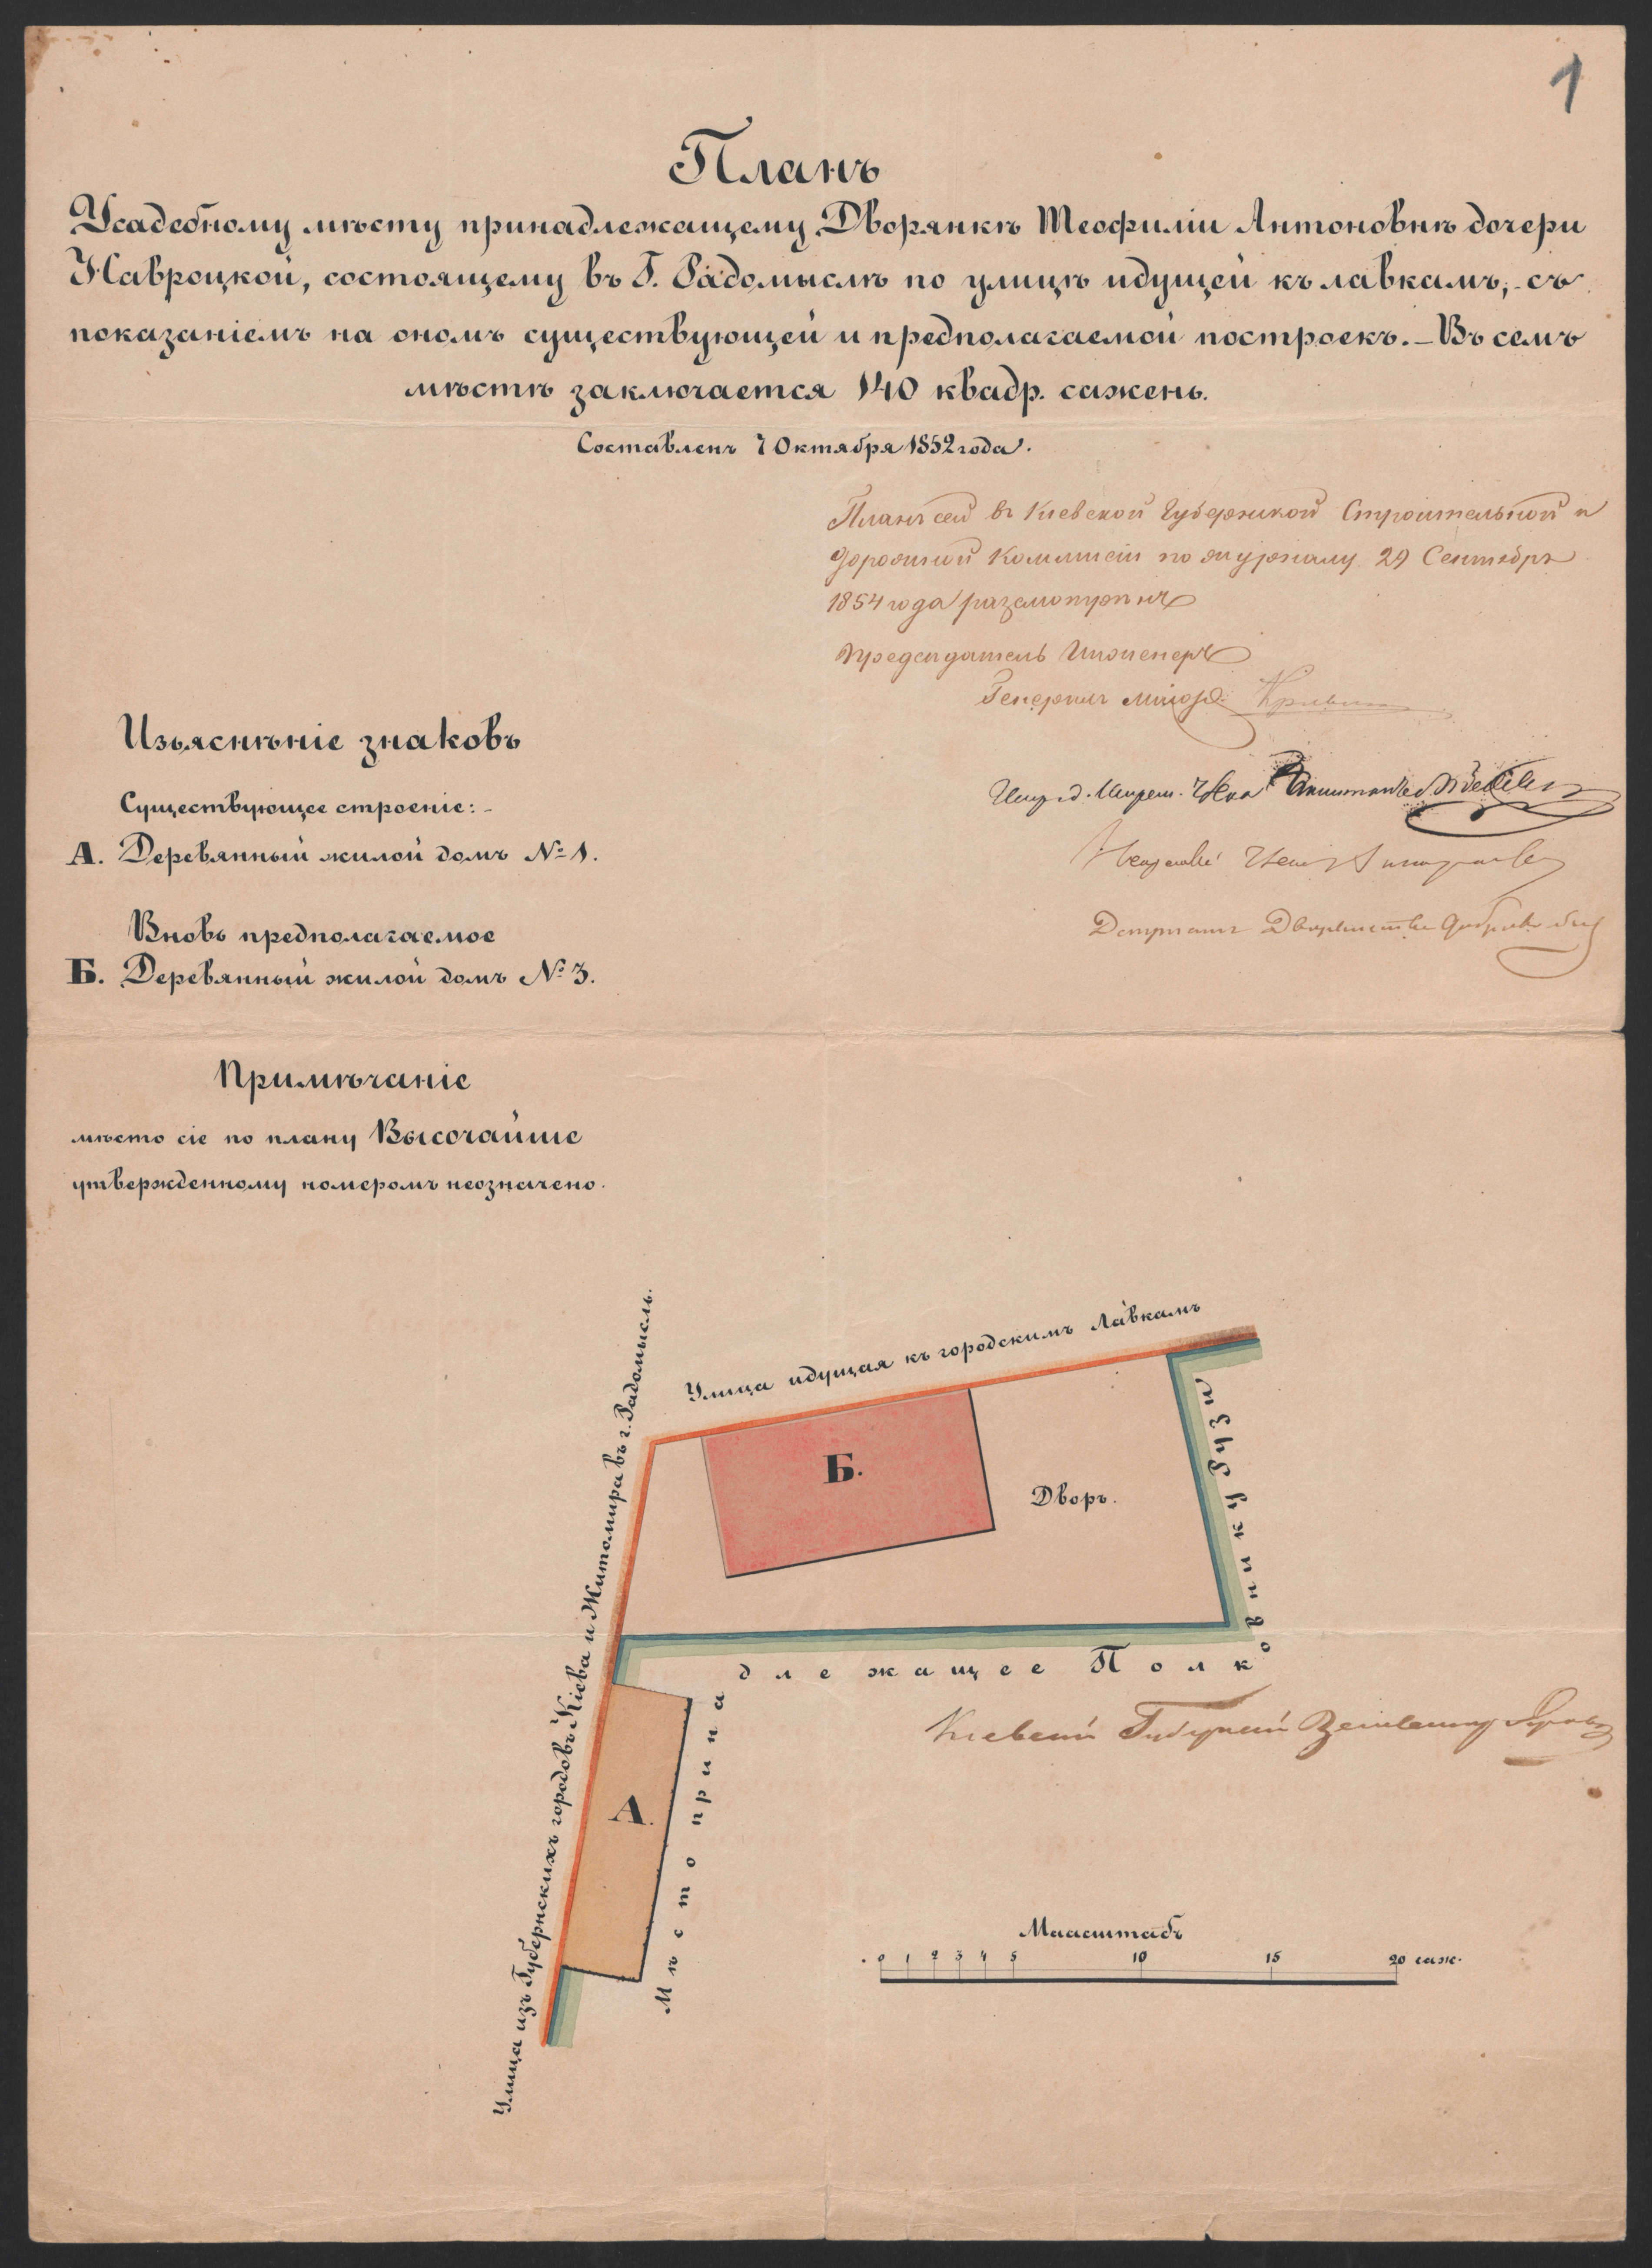 1
Планъ
Усадебному мѣсту принадлежащему Дворянкѣ Теофиліи Антоновнѣ дочери
Навроцкой, состоящему въ Г. Радомыслѣ по улицѣ идущей къ лавкамъ, - съ
показаніемъ на ономъ существующей и предполагаемой построекъ. - Въ семъ
мѣстѣ заключается 140 квадр. сажень.
Составленъ 7 Октября 1852 года.
Планъ сей въ Кіевской Губернской Строительной и
Дорожной Коммисіи по журналу 29 Сентября
1854 года разсмотрѣнъ
Председатель Инженеръ
Генералъ Маіоръ
Изъяснѣніе знаковъ
Существующее строеніе: -
А. Деревянный жилой домъ № 1.
Вновь предполагаемое
Б. Деревянный жилой домъ № 3.
Депутатъ Дворянства
Примѣчаніе
мѣсто сіе по плану Высочайше
утвержденному номеромъ неозначено.
Улица идущая къ городскимъ Лавкамъ
Улица изъ Губернскихъ городовъ Кіева и Житомира въ г. Радомысль.
Б.
Дворъ.
А.
Мѣсто принадлежащее Полковнику Рузи
Кіевскій Губернскій Землемѣръ
Мааситабъ
0 1 2 3 4 5 10 15 20 саж.